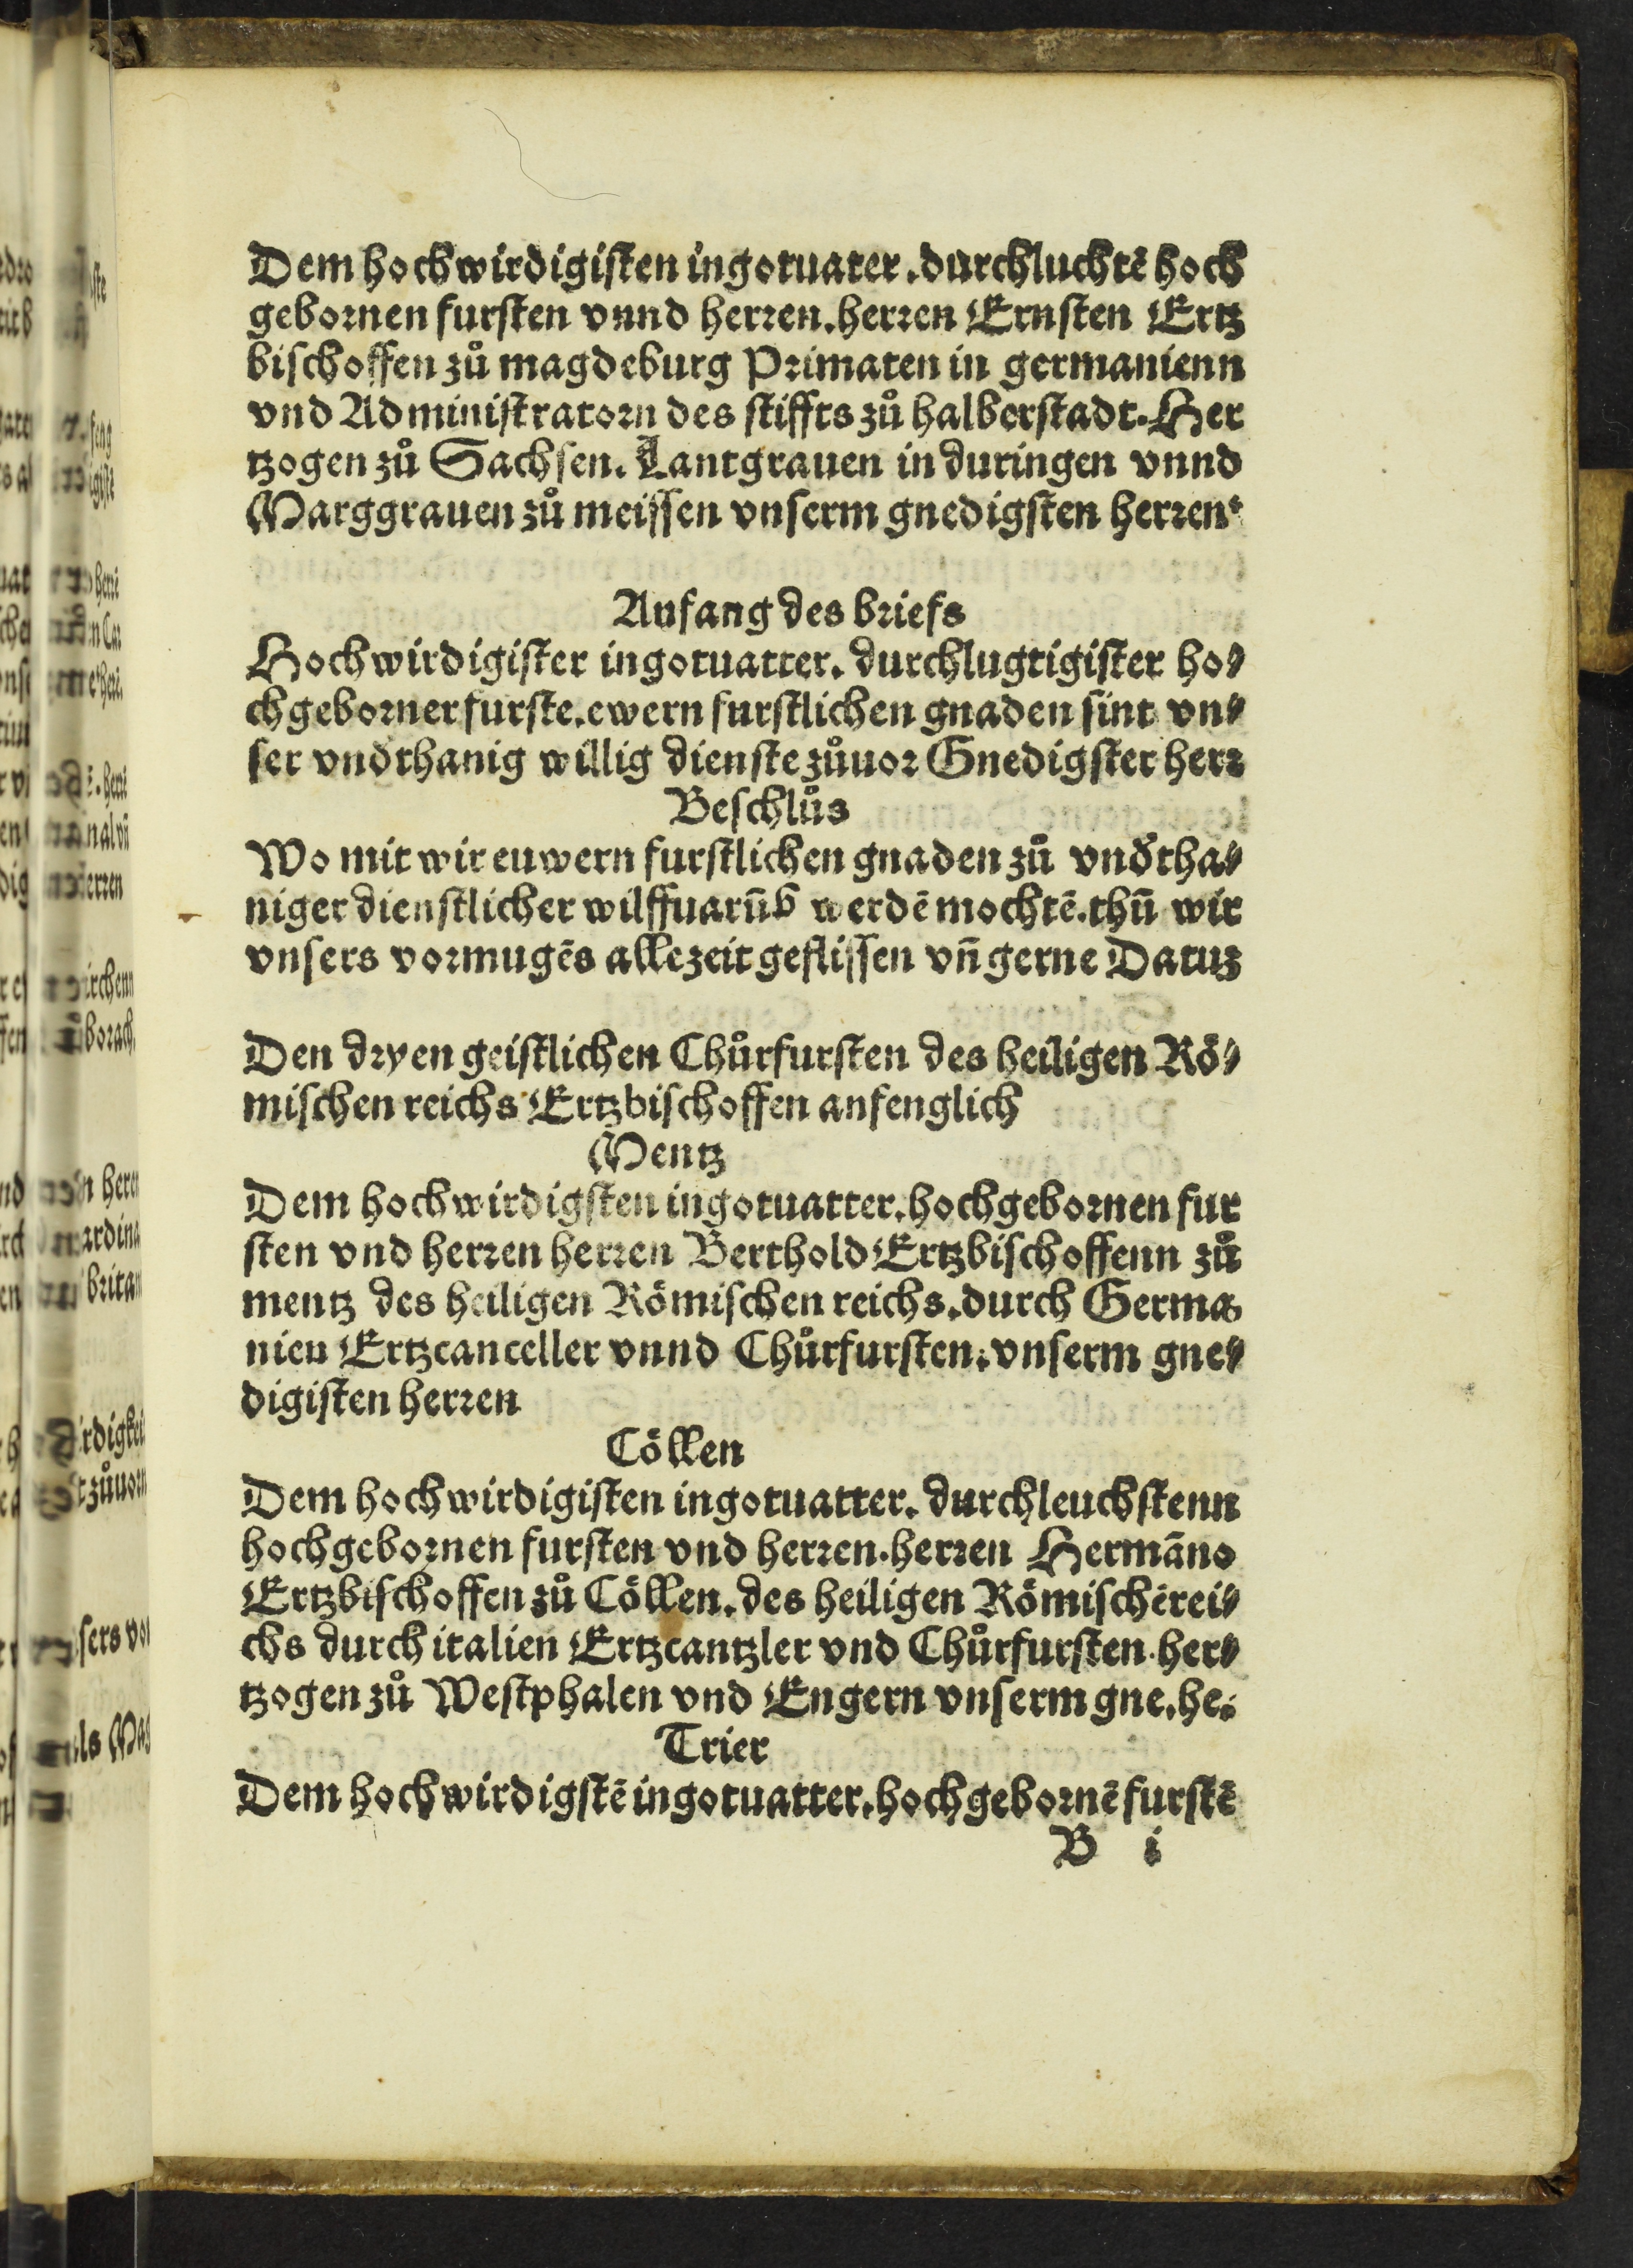 Dem hochwirdigisten ingotuater. durchluchtē hoch
gebornen fursten vnnd herren. herren Ernsten Ertz
bischoffen zů magdeburg Primaten in germanienn
vnd Administratorn des stiffts zů halberstadt. Her
tzogen zů Sachsen. Lantgrauen in duringen vnnd
Marggrauen zů meissen vnserm gnedigsten herren.
Anfang des briefs
Hochwirdigister ingotuatter. durchlugtigister ho⸗
chgeborner furste. ewern furstlichen gnaden sint vn⸗
ser vndthanig willig dienste zůuor Gnedigster herr
Beschlůs
Wo mit wir euwern furstlichen gnaden zů vndtha⸗
niger dienstlicher wilffuarūb werdē mochtē. thū wir
vnsers vormugēs allezeit geflissen vn̄ gerne Datuz
Den dryen geistlichen Chůrfursten des heiligen Rö⸗
mischen reichs Ertzbischoffen anfenglich
Mentz
Dem hochwirdigsten ingotuatter. hochgebornen fur
sten vnd herren herren Berthold Ertzbischoffenn zů
mentz des heiligen Römischen reichs. durch Germa⸗
nien Ertzcanceller vnnd Chůrfursten. vnserm gne⸗
digisten herren
Cöllen
Dem hochwirdigisten ingotuatter. durchleuchstenn
hochgebornen fursten vnd herren. herren Hermāno
Ertzbischoffen zů Cöllen. des heiligen Römischē rei⸗
chs durch italien Ertzcantzler vnd Chůrfursten. her⸗
tzogen zů Westphalen vnd Engern vnserm gne. he.
Trier
Dem hochwirdigstē ingotuatter. hochgebornē furstē
B i